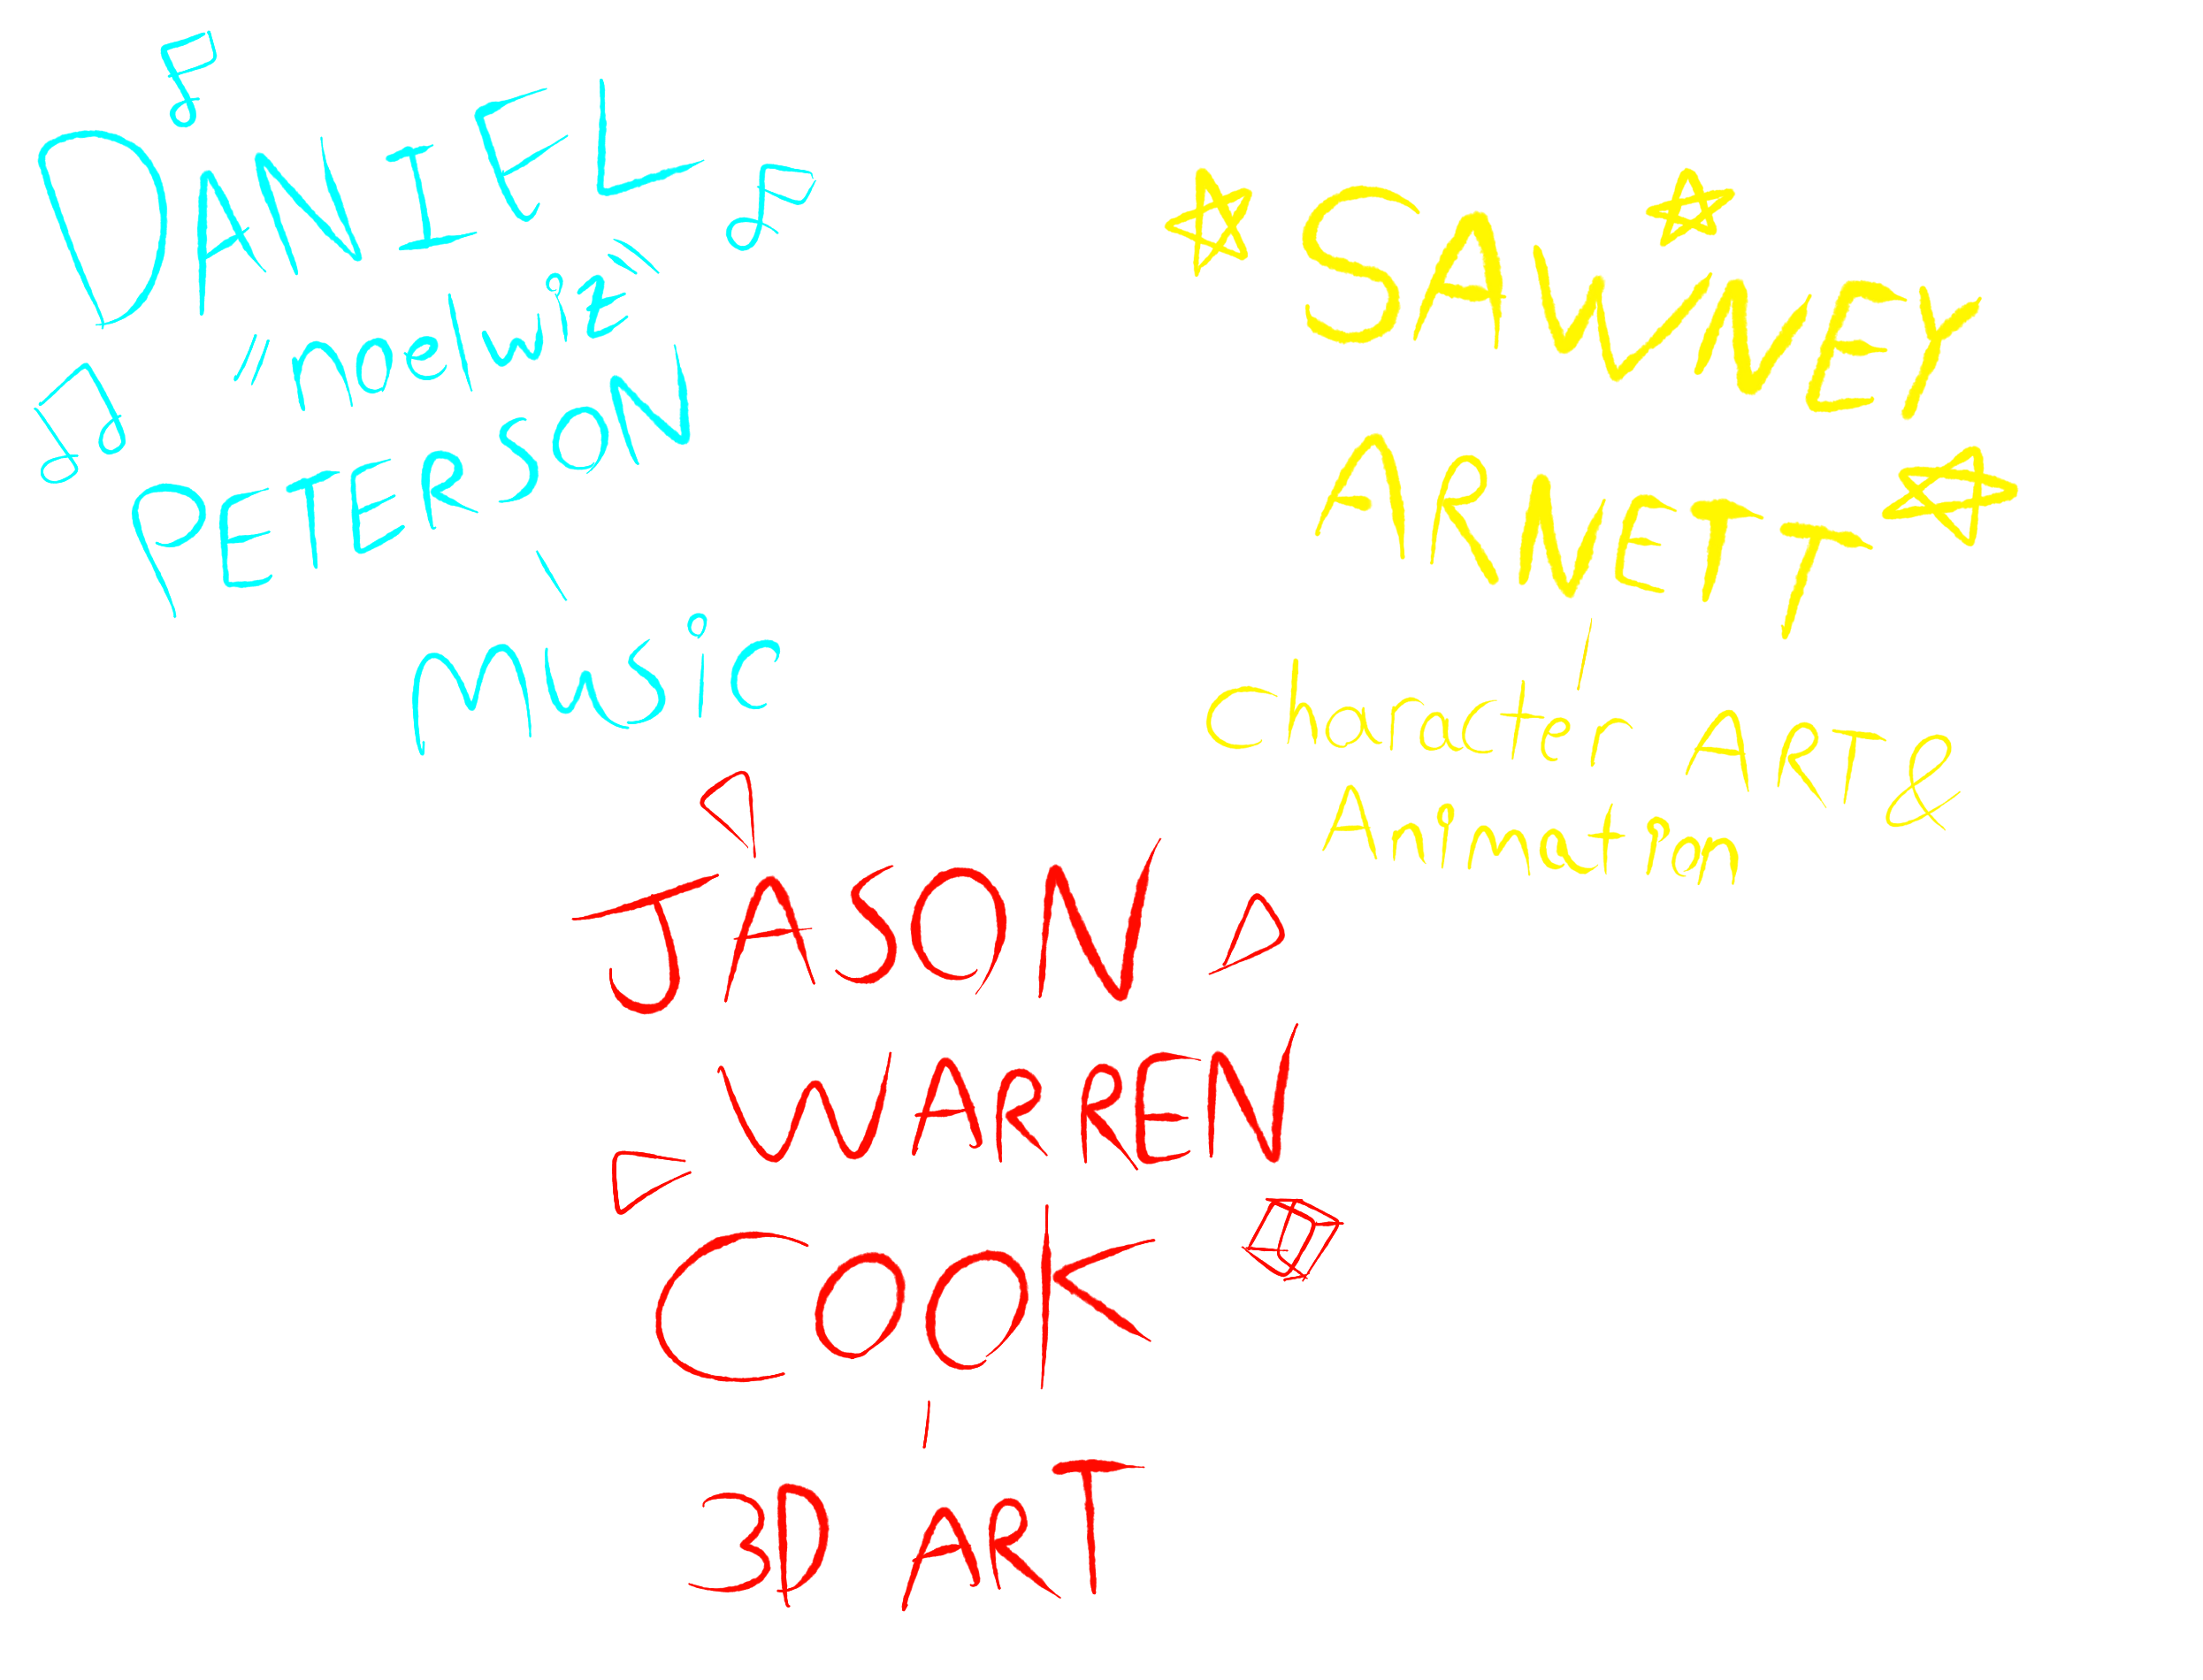 DANIEL
"noelwiz"
PETERSON
-
Music
SAWNEY
ARNETT
-
Character ART &
Animation
JASON
WARREN
COOK
-
3D ART